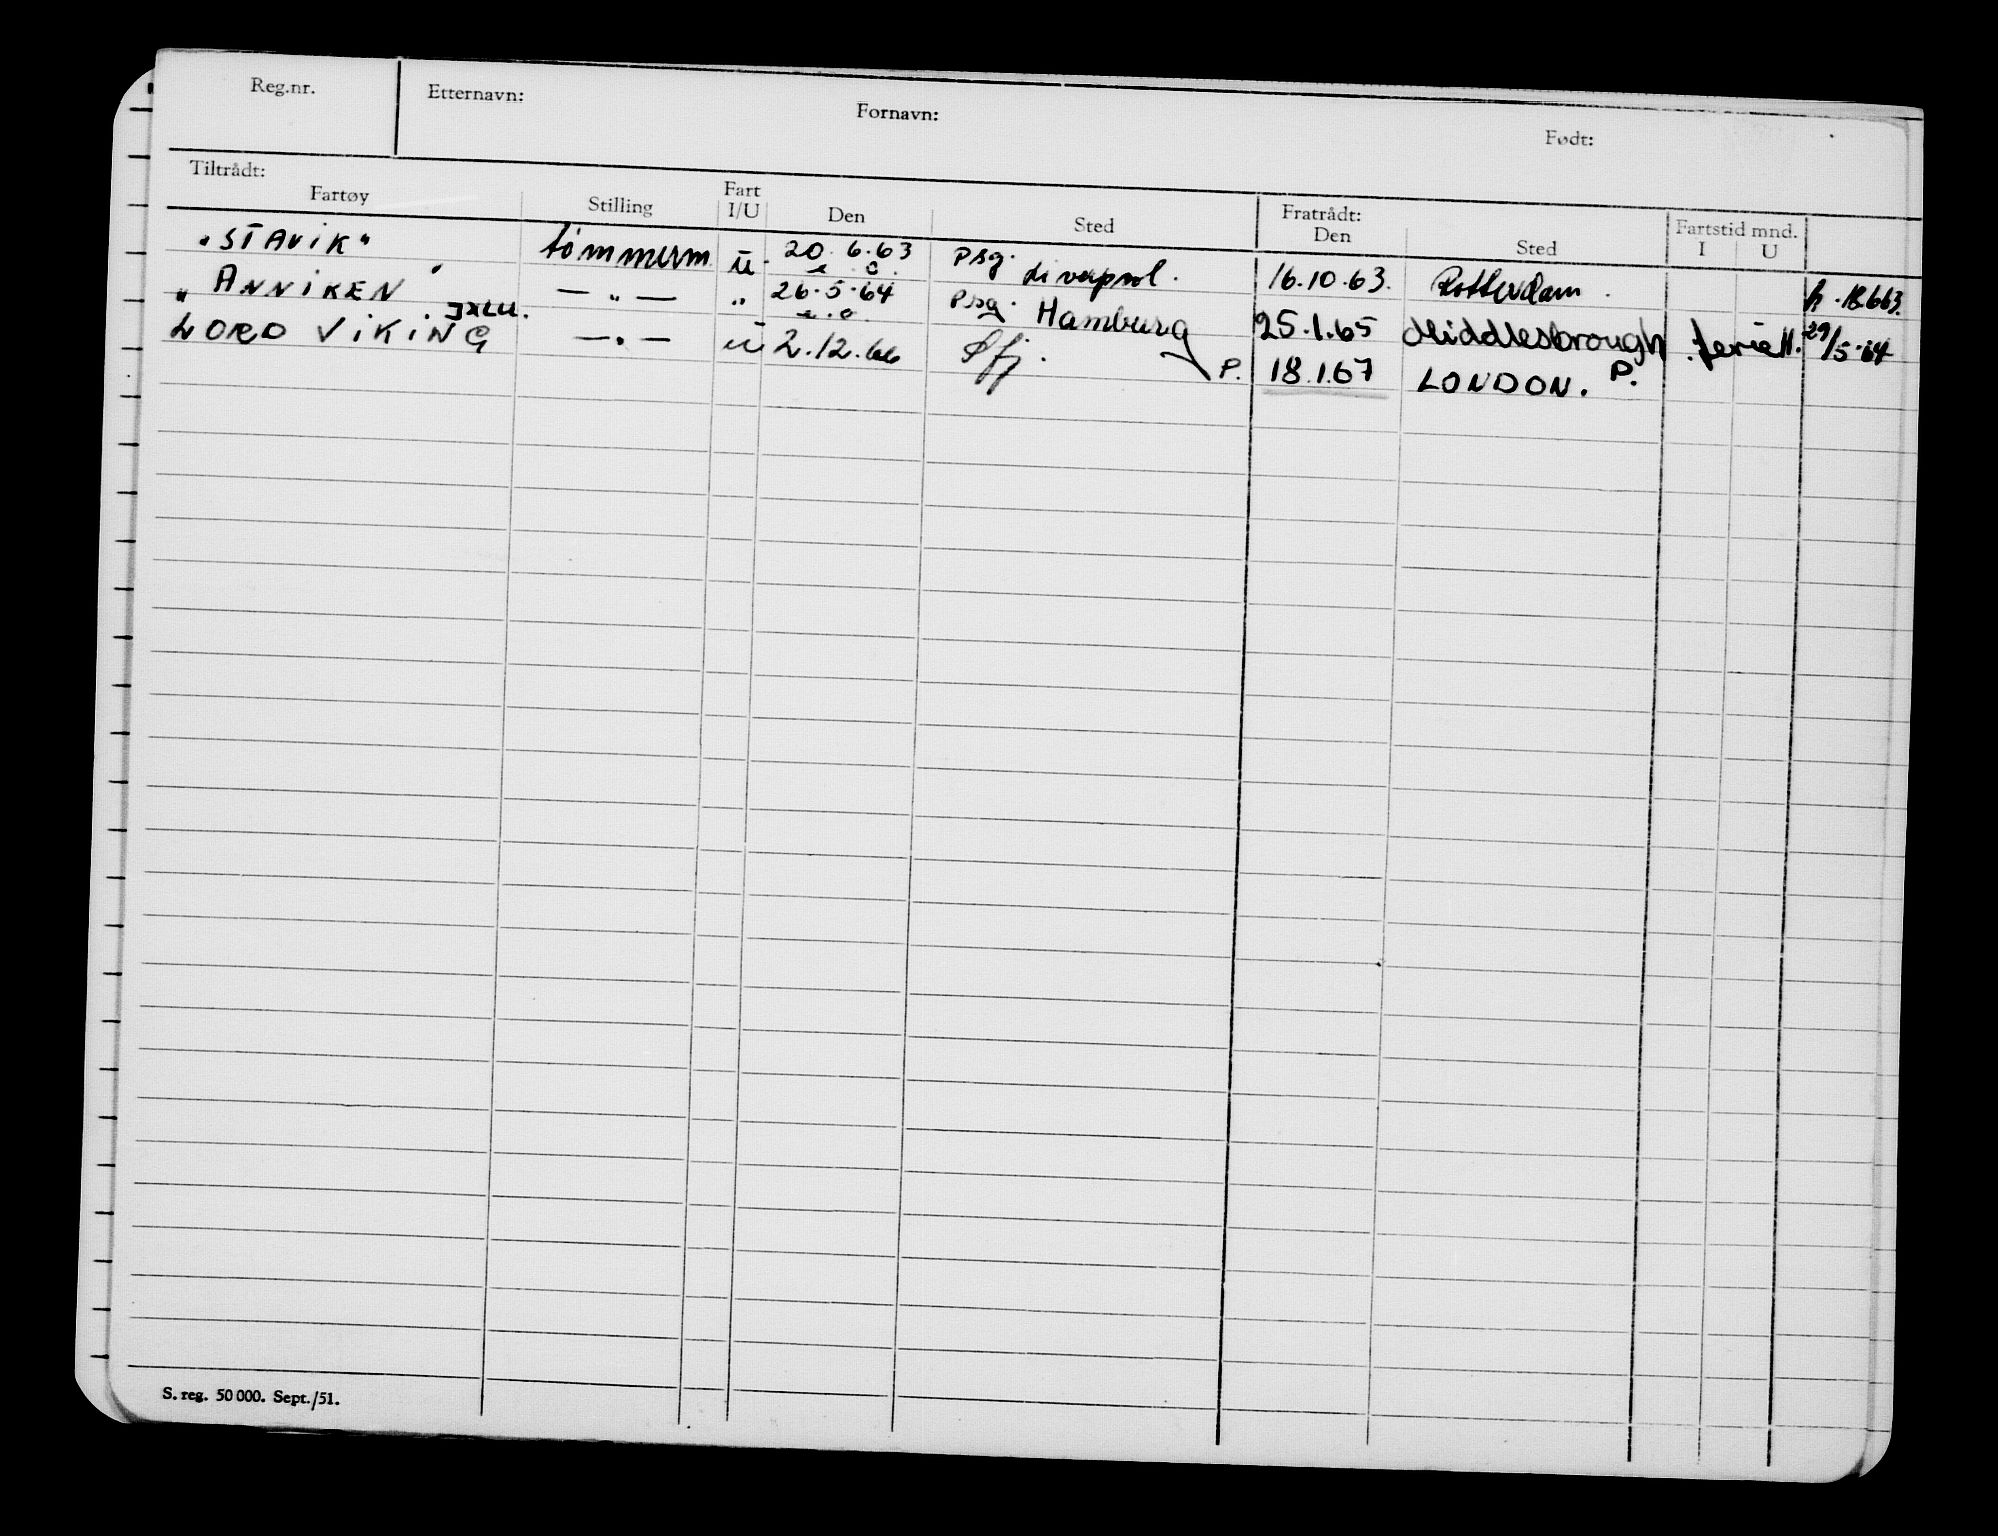 Reg.nr. Etternavn: Fornavn: Født:
Tiltrådt: Fratrådt: Fartstid mnd.
Fartøy Stilling Fart I/U Den Sted Den Sted I U
"STAVIK" tømmerm u. 20.6.63 Psg. Liverpool. 16.10.63. Rotterdam. 18.6.63.
"ANNIKEN" — " — " 26.5.64 Psg. Hamburg 25.1.65 Middlesbrough 29/5.64
LORD VIKING — " — u 2.12.66 Sfj. P. 18.1.67 LONDON. P.
S. reg. 50 000. Sept./51.